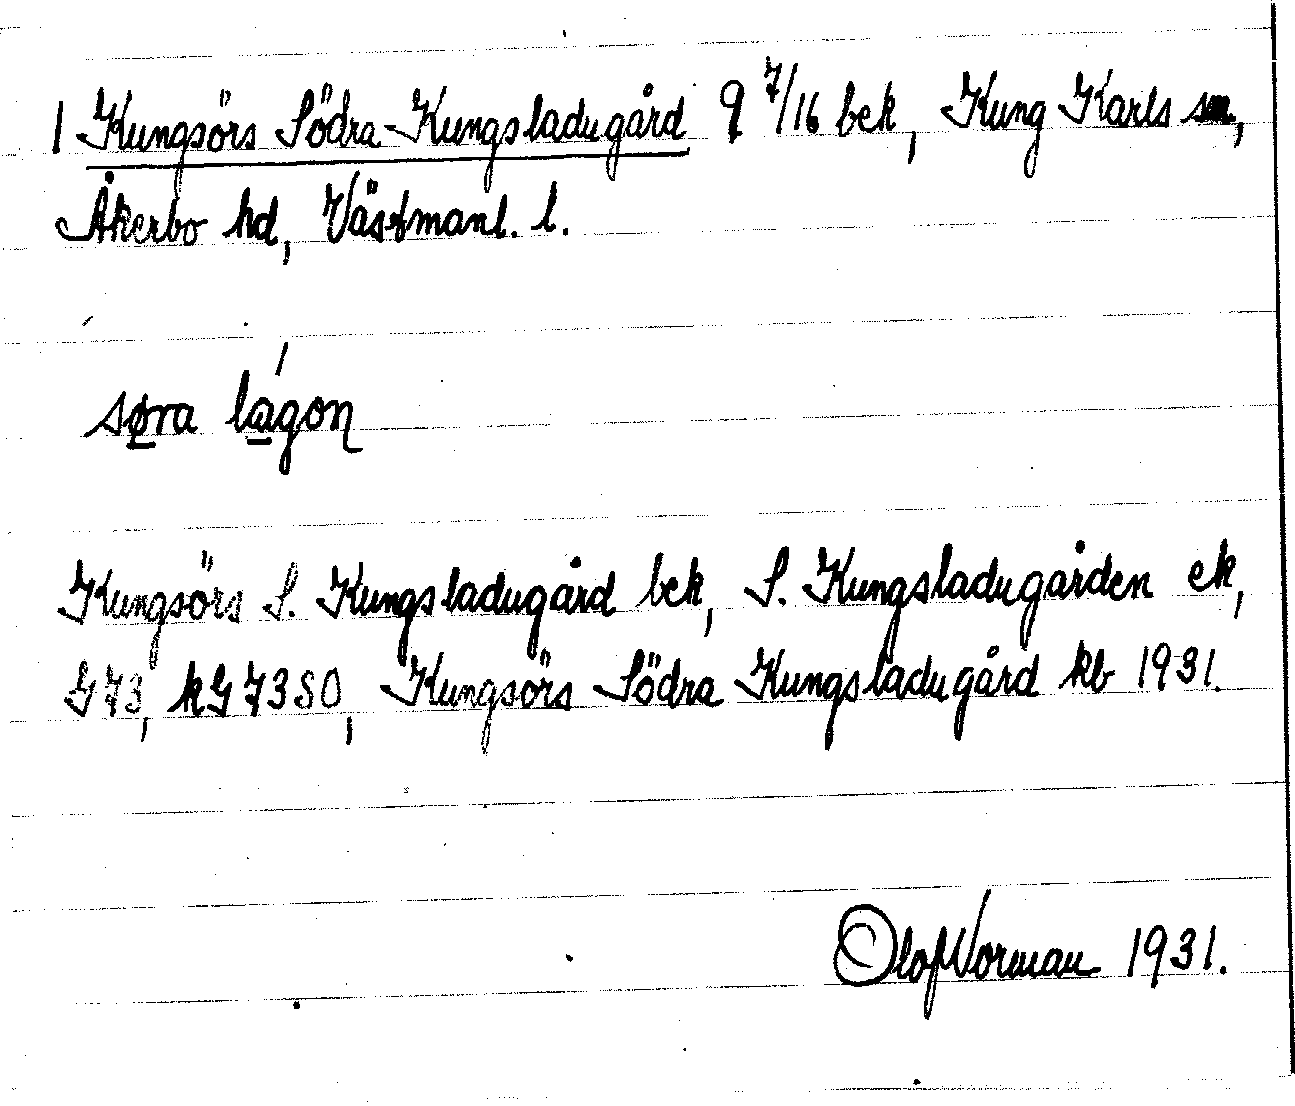 1 Kungsörs Södra Kungsladugård 9 7/16 bek, Kung Karls sn,
Åkerbo hd, Västmanl. l.
søra lagon
Kungsörs S. Kungsladugård bek, S. Kungsladugården ek,
G73, kG73SO, Kungsörs Södra Kungsladugård kb 1931.
Olof Vorman 1931.